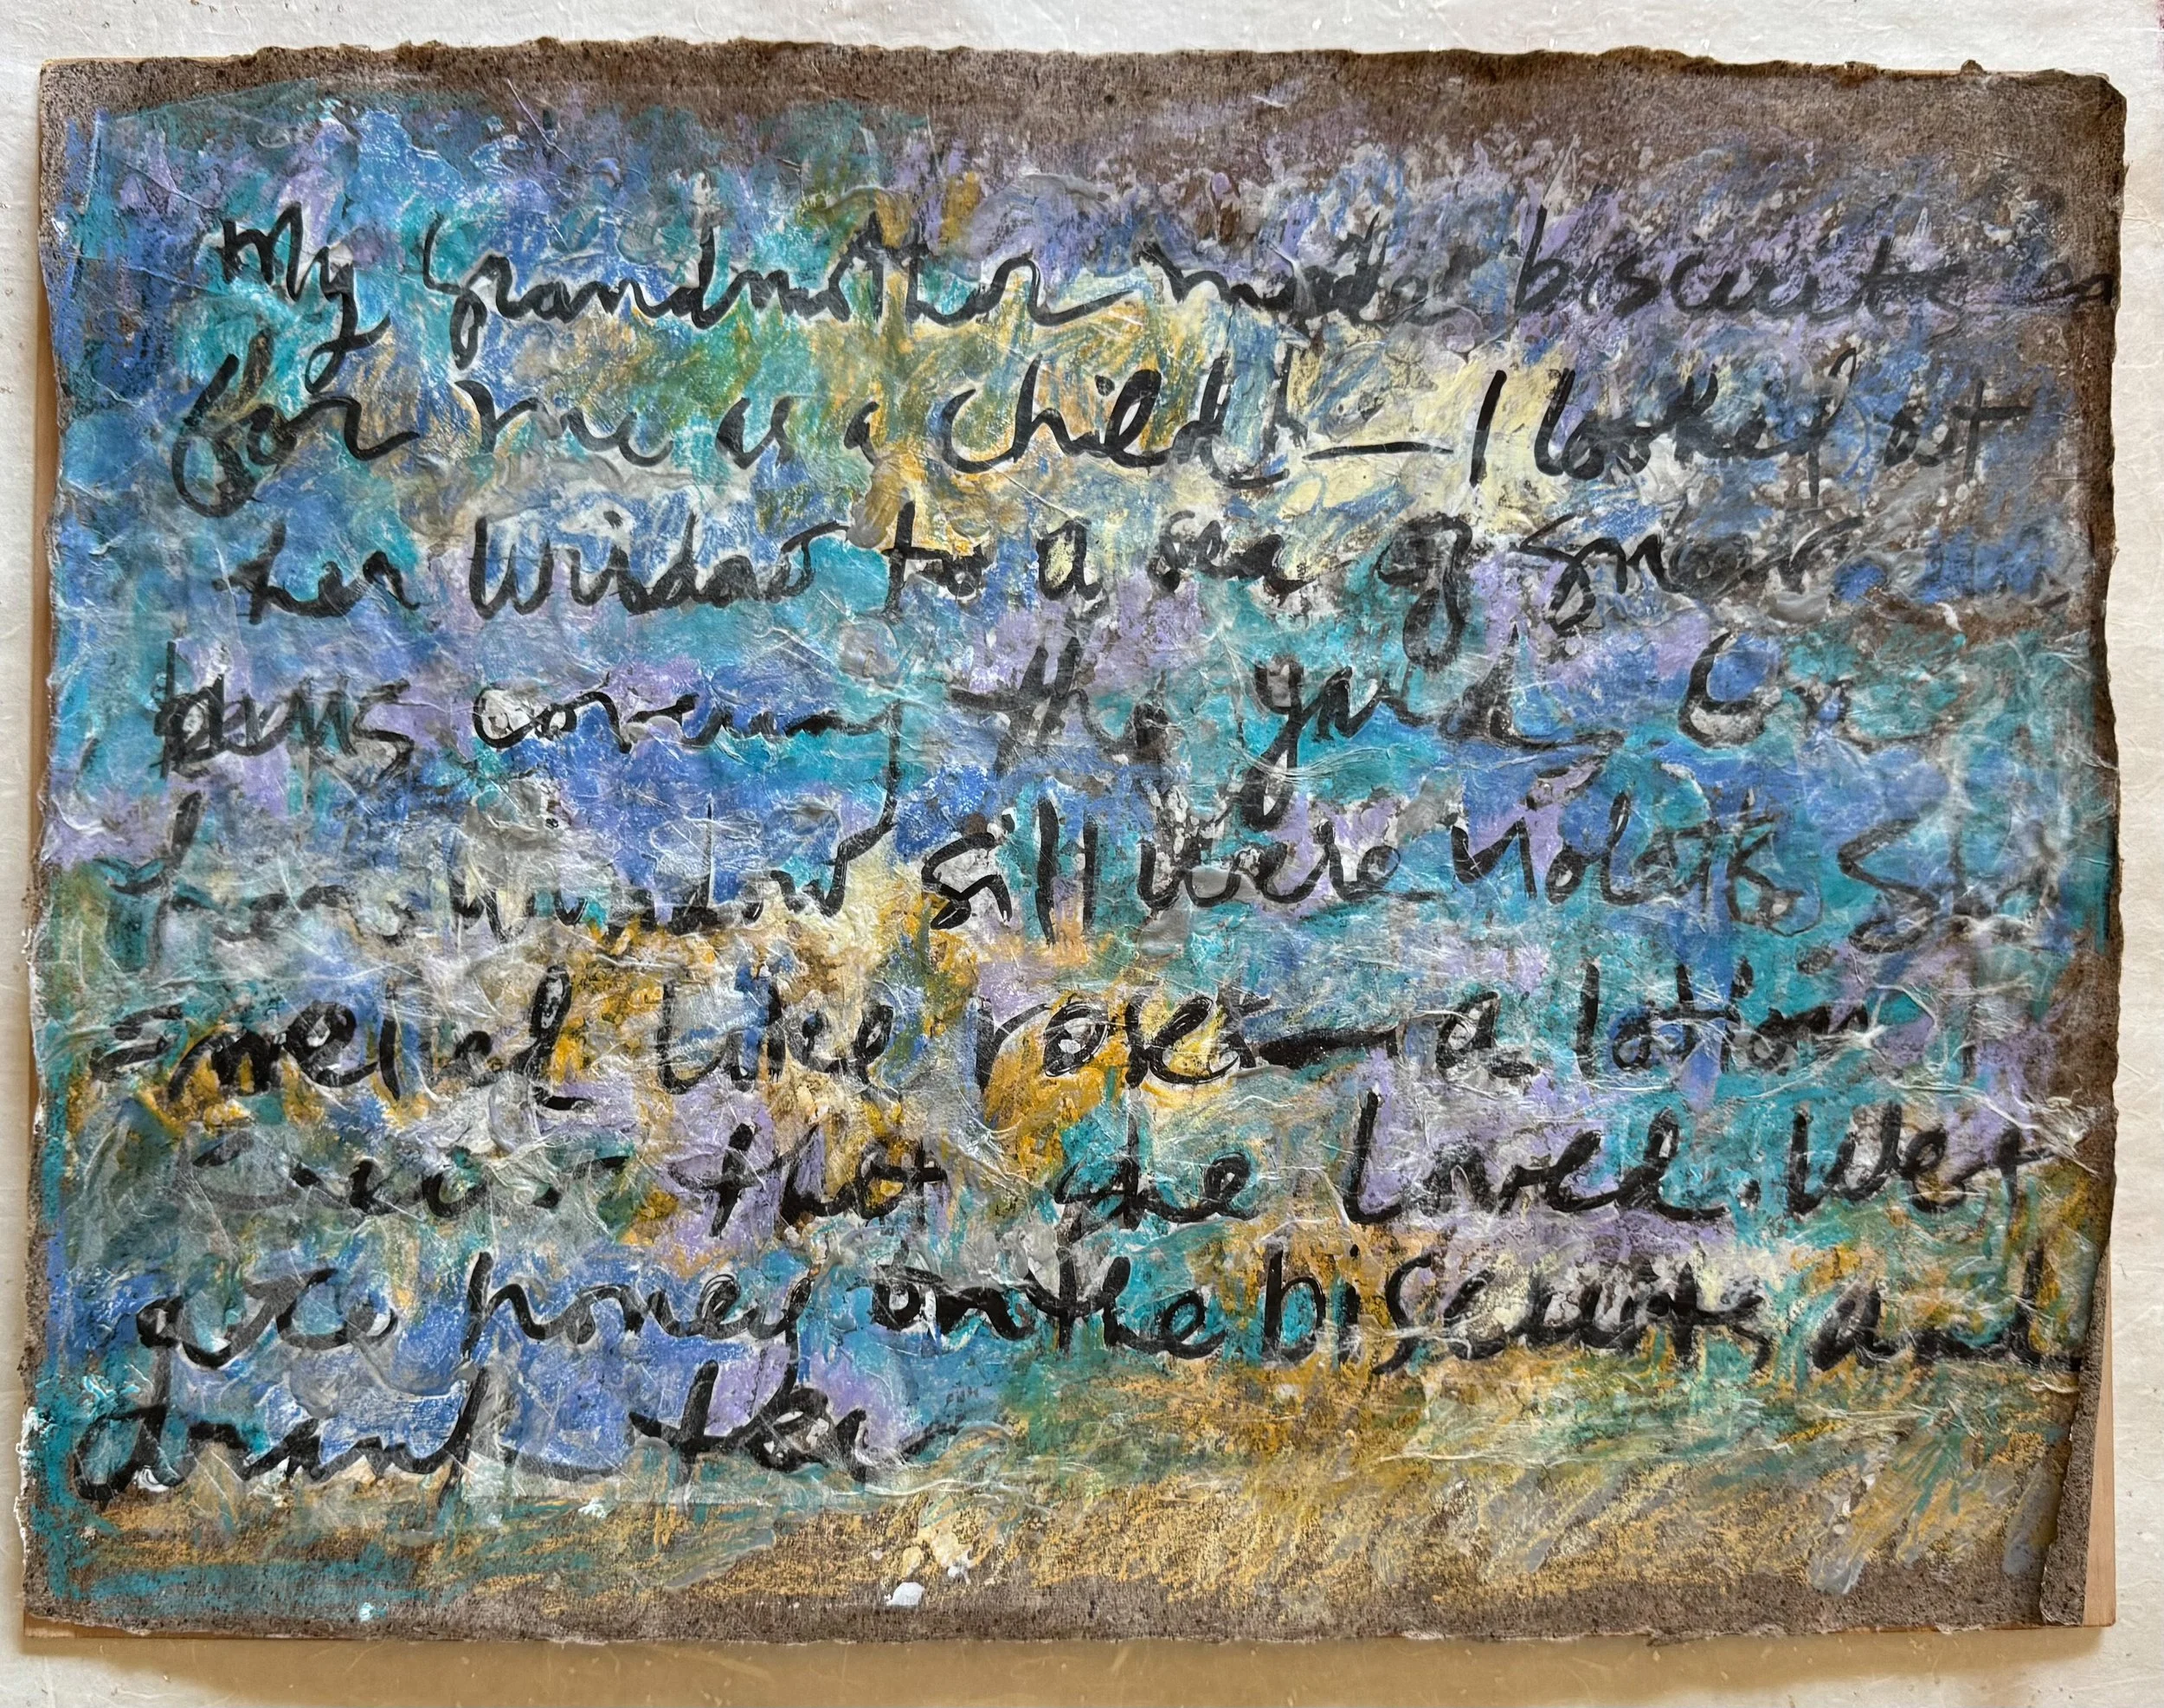 My Grandmother made biscuits
for me as a child — I looked out
her window to a sea of snow
covering the yard. On
her window sill were violets She
smelled like roses — a lotion
that she loved. We
ate honey on the biscuits and
drank tea